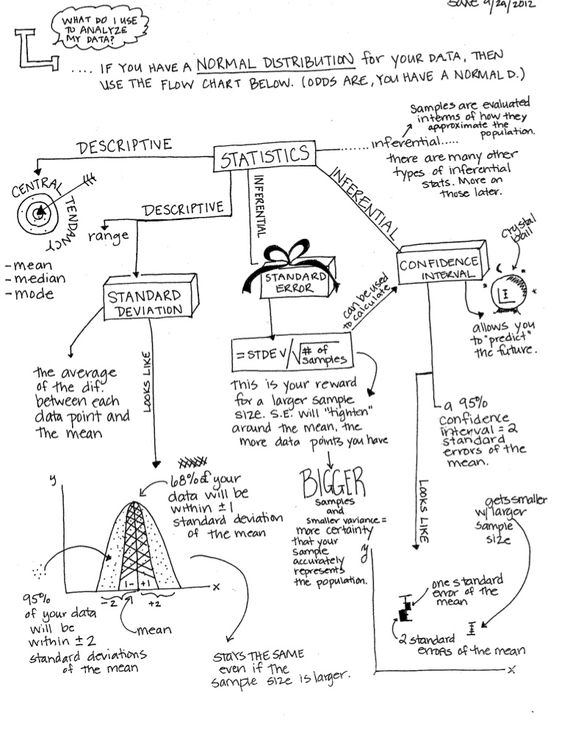 9/24/2012
WHAT DO I USE
TO ANALYZE
MY DATA?
.... IF YOU HAVE A NORMAL DISTRIBUTION for YOUR DATA, THEN
USE THE FLOW CHART BELOW. (ODDS ARE, YOU HAVE A NORMAL D.)
Samples are evaluated
in terms of how they
approximate the
population.
inferential.....
there are many other
types of inferential
stats. More on
those later.
STATISTICS
DESCRIPTIVE
CENTRAL
TENDANCY
-mean
-median
-mode
DESCRIPTIVE
range
STANDARD
DEVIATION
the average
of the dif.
between each
data point and
the mean
LOOKS LIKE
INFERENTIAL
STANDARD
ERROR
= STDEV/√# of
samples
This is your reward
for a larger sample
size. S.E. will "tighten"
around the mean, the
more data points you have
can be used
to calculate
INFERENTIAL
CONFIDENCE
INTERVAL
crystal
ball
allows you
to "predict"
the future.
a 95%
confidence
interval = 2
standard
errors of the
mean.
LOOKS LIKE
BIGGER
samples
and
smaller variance =
more certainty
that your
sample
accurately
represents
the population.
68% of your
data will be
within ±1
standard deviation
of the mean
y
x
1- +1
-2 +2
mean
95%
of your data
will be
within ±2
standard deviations
of the mean
STAYS THE SAME
even if the
sample size is larger.
gets smaller
w/ larger
sample
size
y
one standard
error of the
mean
2 standard
errors of the mean
x